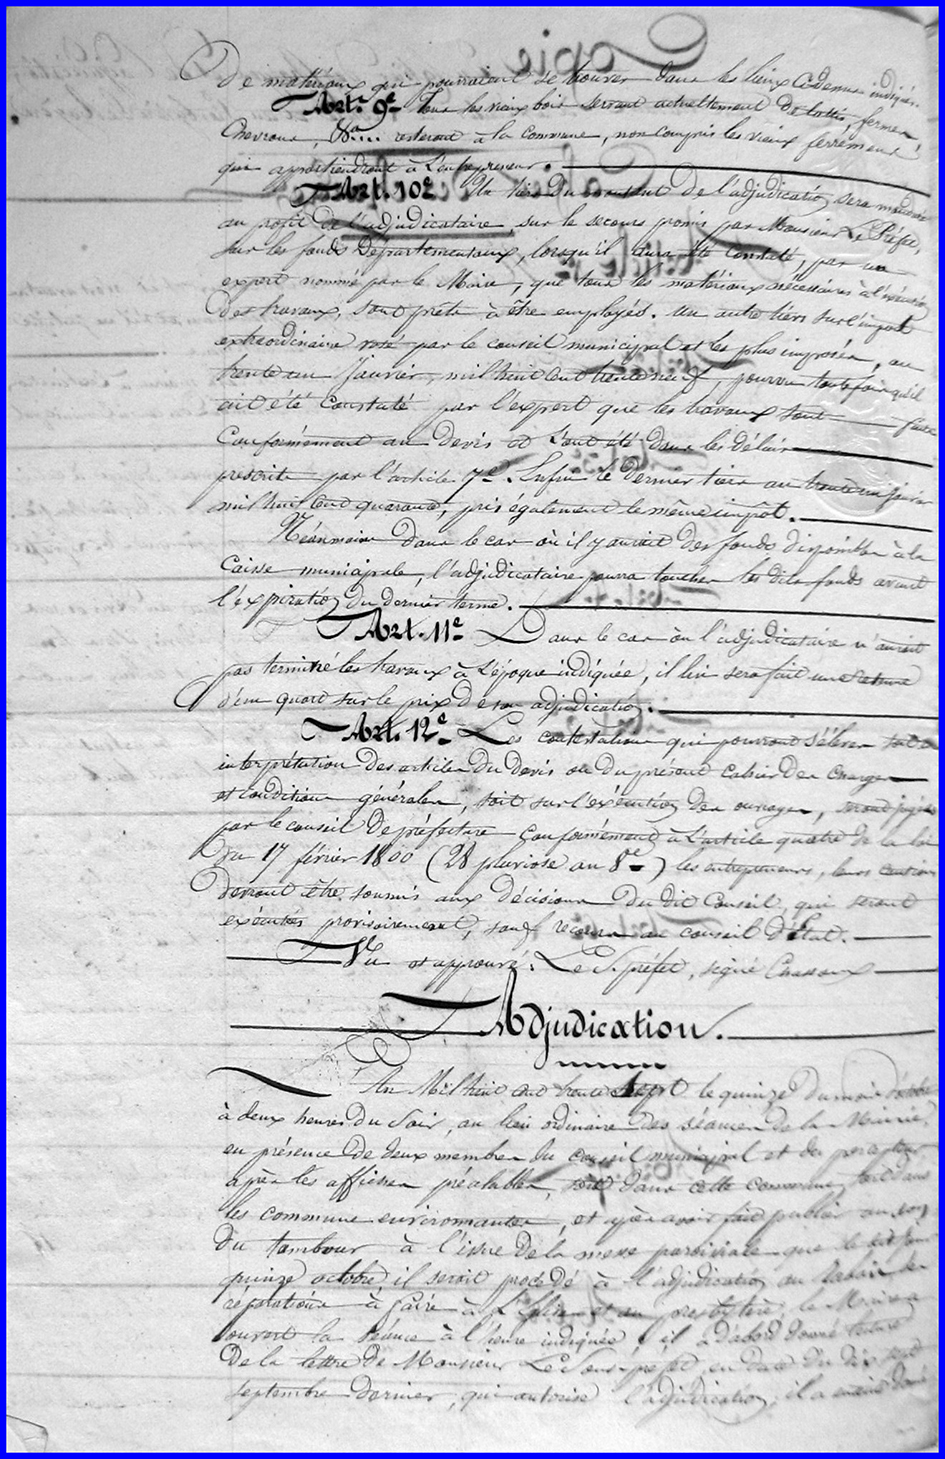 de matériaux qui pourraient se trouver dans les lieux ci-dessus indiqués.
Art. 9e Tous les vieux bois servant actuellement de lattes, fermes
Chevrons, &a.... resteront à la commune, non compris les vieux ferrements
qui appartiendront à l'entrepreneur.
Art. 10e Un tiers du montant de l'adjudication sera mandaté
au profit de l'adjudicataire, sur le secours promis par Monsieur Le Préfet,
sur les fonds Départementaux, lorsqu'il aura été constaté, par un
expert nommé par le Maire, que tous les matériaux nécessaires à l'exécution
des travaux, sont prêts à être employés. un autre tiers sur l'impôt
extraordinaire voté par le conseil municipal et les plus imposés, au
trente un Janvier, mil huit cent trente neuf, pourvu toutefois qu'il
ait été constaté par l'expert que les travaux sont faits
Conformément au Devis et l'ont été dans les délais
prescrits par l'article 7e. Enfin le dernier tiers au trente un janvier
mil huit cent quarante, pris également le même impôt.
Néanmoins dans le cas où il y aurait des fonds disponibles à la
Caisse municipale, l'adjudicataire pourra toucher les dits fonds avant
l'expiration du dernier terme.
Art. 11e Dans le cas où l'adjudicataire n'aurait
pas terminé les travaux à l'époque indiquée, il lui sera fait une retenue
d'un quart sur le prix de son adjudication.
Art. 12e Les contestations qui pourront s'élever soit
interprétation des articles du Devis ou du présent Cahier des Charges
et conditions générales, soit sur l'exécution des ouvrages, seront jugées
par le conseil de préfecture conformément à l'article quatre de la loi
du 17 février 1800 (28 pluviose an 8e) les entrepreneurs, leurs cautions
devront être soumis aux décisions du dit Conseil, qui seront
exécutées provisoirement, sauf recours au conseil d'État.
Vu et approuvé: Le S. préfet, signé
Adjudication.
An Mil huit cent trente sept le quinze du mois d'octobre
à deux heures du Soir, au lieu ordinaire des séances de la Mairie,
en présence de deux membres du conseil municipal et du percepteur
après les affiches préalables, soit dans cette commune, soit dans
les communes environnantes, et après avoir fait publier au son
du tambour à l'issue de la messe paroissiale que le dit jour
quinze octobre il seroit procédé à l'adjudication au rabais des
réparations à faire à l'Eglise et au presbytère, le Maire a
ouvert la séance à l'heure indiquée, il a d'abord donné lecture
de la lettre de Monsieur Le Sous-préfet, en date du dix sept
septembre dernier, qui autorise l'adjudication; il a ensuite donné